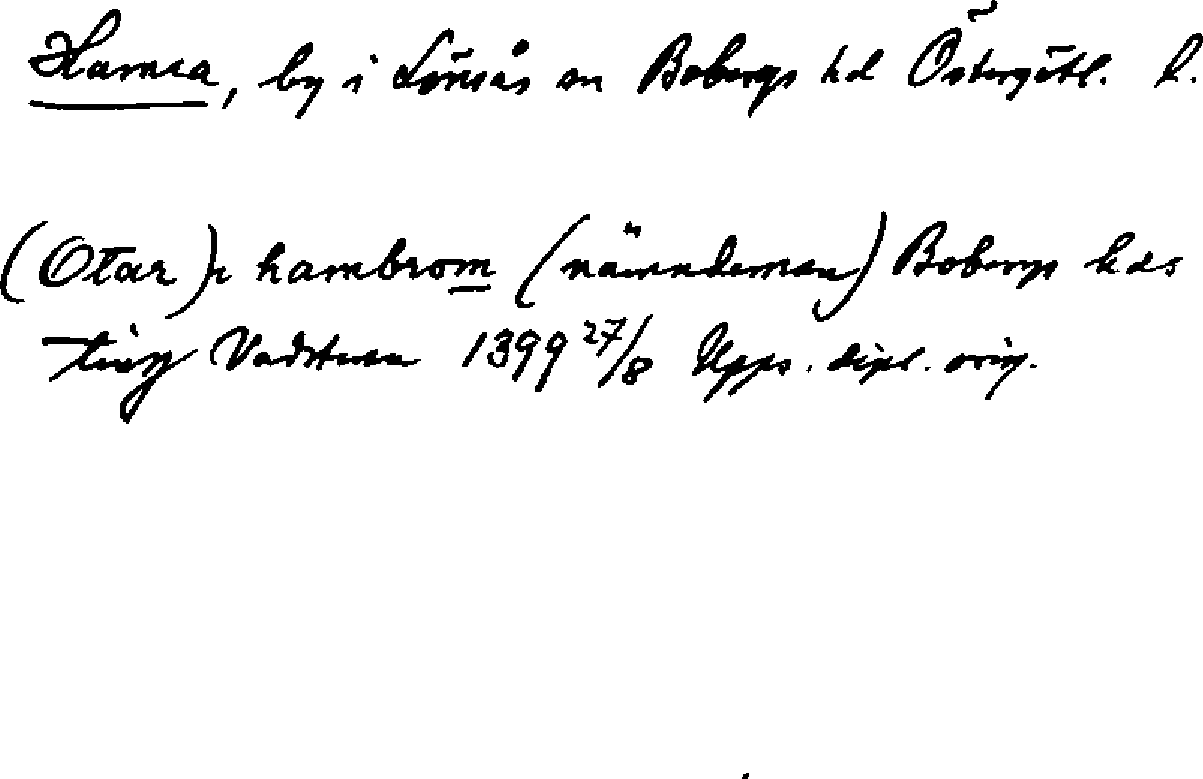 Hamra, by i Lönsås sn Bobergs hd Östergötl. l.
(Otar) i hambrom (nämndeman) Bobergs hds
ting Vadstena 1399 27/8 Upps. dipl. orig.